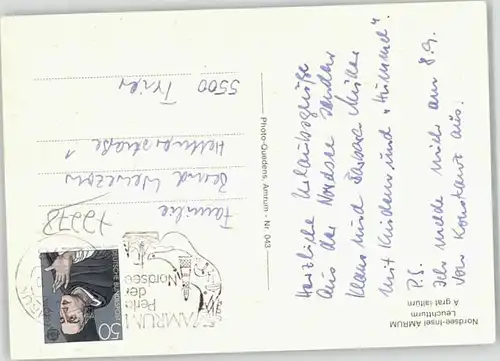 Herzliche Urlaubsgrüße
aus der Nordsee senden
Klaus und Barbara Müller
mit Kindern und "Hummel".
P.S.
Ich melde mich am 8.9.
von Konstanz aus.
Nordsee-Insel AMRUM
Leuchtturm
A grat ialtürn
Photo-Quedens, Amrum - Nr. 043
AMRUM
Perle
der
Nordsee
DEUTSCHE BUNDESPOST
50
72278
Familie
Bernd
1
5500 Trier